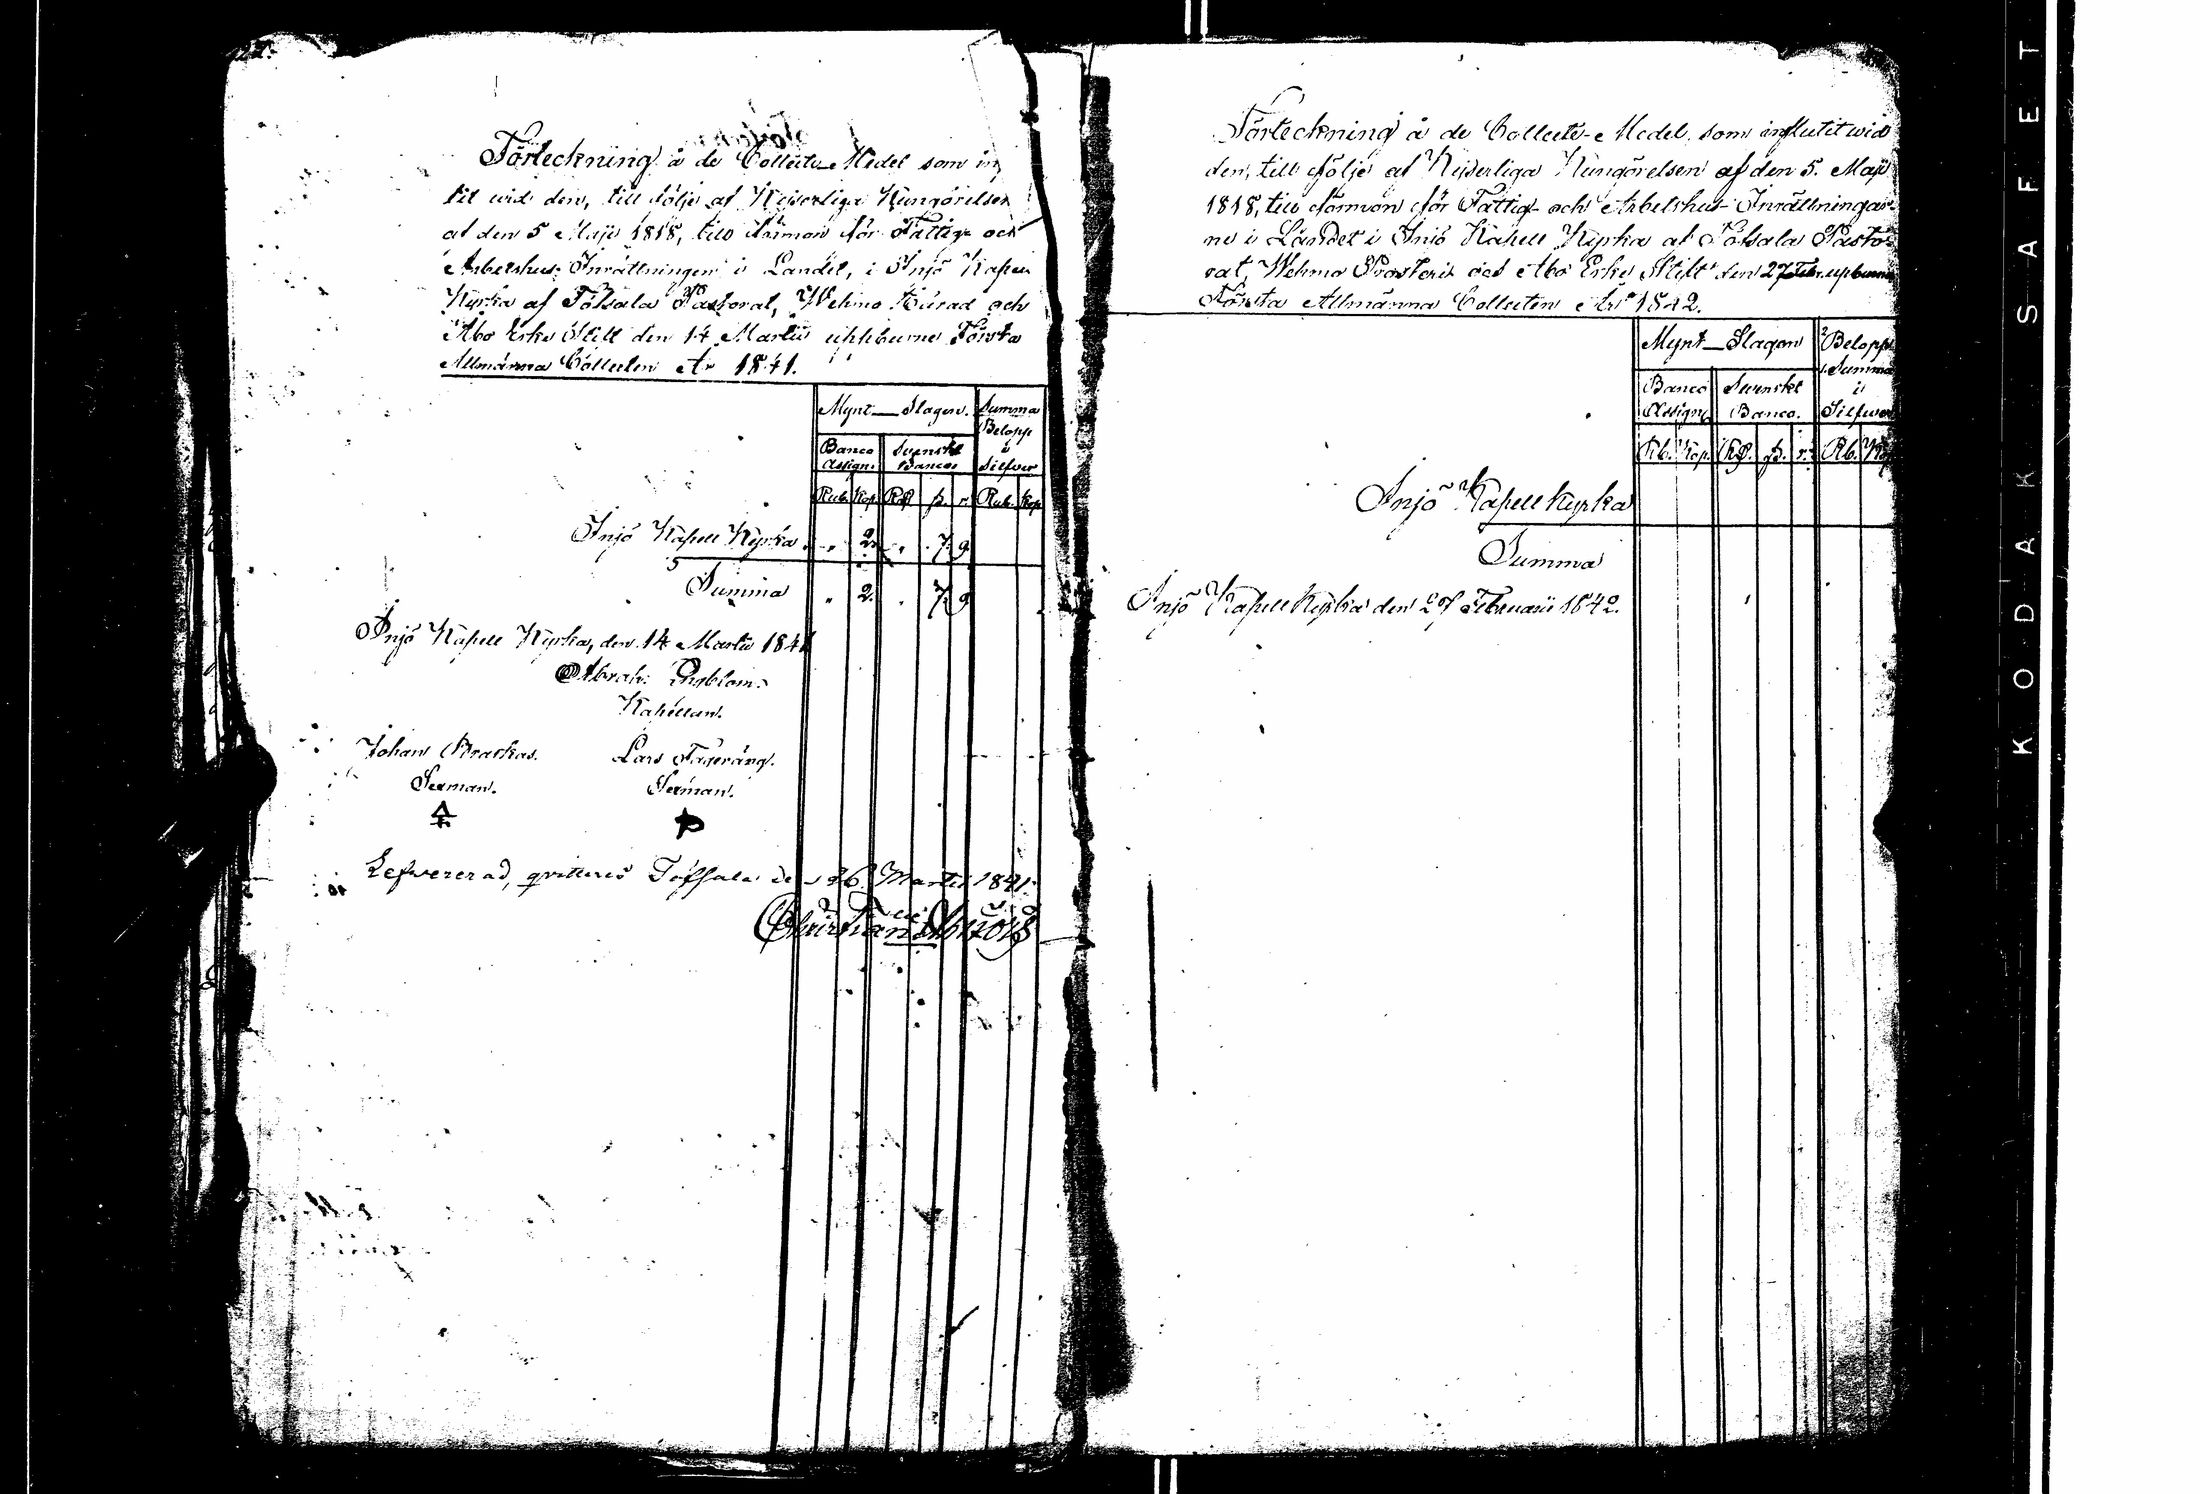 Förteckning å de Collecte-Medel som in
tit wid den, till följe af Kejserliga Kungörelsen
af den 5 Maji 1818, till förmon för Fattig- och
Arbetshus-Inrättningen i Landet, i Iniö Kapell
Kyrka af Töfsala Pastorat, Wehmo Härad och
Åbo Erke Stift den 14 Martii uppburne Första
Allmänna Collecten År 1841.
Mynt-Slagen. Summa
Belopp
i
Silfwer
Banco Assign. Svenskt Banco.
Rub. Kop. Rdr ß. r. Rub. Kop.
Iniö Kapell Kyrka . „ 2. „ 7. 9.
Summa „ 2. „ 7. 9
Iniö Kapell Kyrka, den 14 Martii 1841
Abrah: Engblom.
Kapellan.
Johan Lars
Sexman. Sexman.
Lefwererad, qvitteras Töfsala den 26 Martii 1841.
Christian
Förteckning å de Collecte-Medel, som influtit wid
den, till följe af Kejserliga Kungörelsen af den 5. Maji
1818, till förmon för Fattig- och Arbetshus-Inrättningar-
ne i Landet i Iniö Kapell Kyrka af Töfsala Pasto-
rat, Wehmo Prosteri och Åbo Erke Stift den 27 Febr. uppburne
Första Allmänna Collecten År 1842.
Mynt-Slagen Belopps
Summa
i
Silfwer
Banco Assign. Svenskt Banco.
Rb. Kop. Rdr. ß. r. Rb. Kop
Iniö Kapell Kyrka
Summa
Iniö Kapell Kyrka den 27 Februarii 1842.
KODAK SAFET